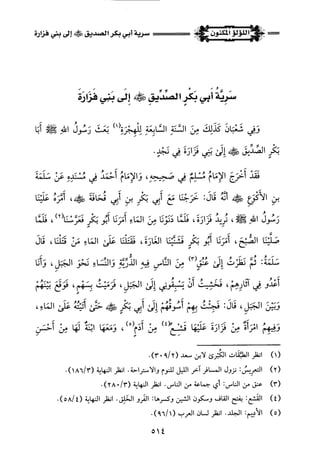 اللؤلؤ المكنون
سرية أبي بكر الصديق ﵁ إلى بني فزارة
سَرِيَّةُ أَبِي بَكْرٍ الصِّدِّيقِ ﵁ إِلَى بَنِي فَزَارَةَ
وَفِي شَعْبَانَ كَذَلِكَ مِنَ السَّنَةِ السَّابِعَةِ لِلْهِجْرَةِ(١) بَعَثَ رَسُولُ اللهِ ﷺ أَبَا
بَكْرٍ الصِّدِّيقَ ﵁ إِلَى بَنِي فَزَارَةَ فِي نَجْدٍ.
فَقَدْ أَخْرَجَ الإِمَامُ مُسْلِمٌ فِي صَحِيحِهِ، وَالإِمَامُ أَحْمَدُ فِي مُسْنَدِهِ عَنْ سَلَمَةَ
بنِ الأَكْوَعِ ﵁ أَنَّهُ قَالَ: خَرَجْنَا مَعَ أَبِي بَكْرِ بنِ أَبِي قُحَافَةَ ﵁، أَمَّرَهُ عَلَيْنَا
رَسُولُ اللهِ ﷺ، نُرِيدُ فَزَارَةَ، فَلَمَّا دَنَوْنَا مِنَ المَاءِ أَمَرَنَا أَبُو بَكْرٍ فَعَرَّسْنَا(٢)، فَلَمَّا
صَلَّيْنَا الصُّبْحَ، أَمَرَنَا أَبُو بَكْرٍ فَشَنَنَّا الغَارَةَ، فَقَتَلْنَا عَلَى المَاءِ مَنْ قَتَلْنَا، قَالَ
سَلَمَةُ: ثُمَّ نَظَرْتُ إِلَى عُنُقٍ(٣) مِنَ النَّاسِ فِيهِ الذُّرِّيَّةُ وَالنِّسَاءُ نَحْوَ الجَبَلِ، وَأَنَا
أَعْدُو فِي آثَارِهِمْ، فَخَشِيتُ أَنْ يَسْبِقُونِي إِلَى الجَبَلِ، فَرَمَيْتُ بِسَهْمٍ، فَوَقَعَ بَيْنَهُمْ
وَبَيْنَ الجَبَلِ، قَالَ: فَجِئْتُ بِهِمْ أَسُوقُهُمْ إِلَى أَبِي بَكْرٍ ﵁ حَتَّى أَتَيْتُهُ عَلَى المَاءِ،
وَفِيهِمُ امْرَأَةٌ مِنْ فَزَارَةَ عَلَيْهَا قَشْعٌ(٤) مِنْ أَدَمٍ(٥)، وَمَعَهَا ابْنَةٌ لَهَا مِنْ أَحْسَنِ
(١) انظر الطَّبَقَات الكُبْرَى لابن سعد (٣٠٩/٢).
(٢) التعريسُ: نزول المسافر آخر الليل للنوم والاستراحة. انظر النهاية (١٨٦/٣).
(٣) عنق من الناس: أي جماعة من الناس. انظر النهاية (٢٨٠/٣).
(٤) القَشع: بفتح القاف وسكون الشين وكسرها: الفَرو الخَلِق. انظر النهاية (٥٨/٤).
(٥) الأَدِيم: الجلد. انظر لسان العرب (٩٦/١).
٥١٤